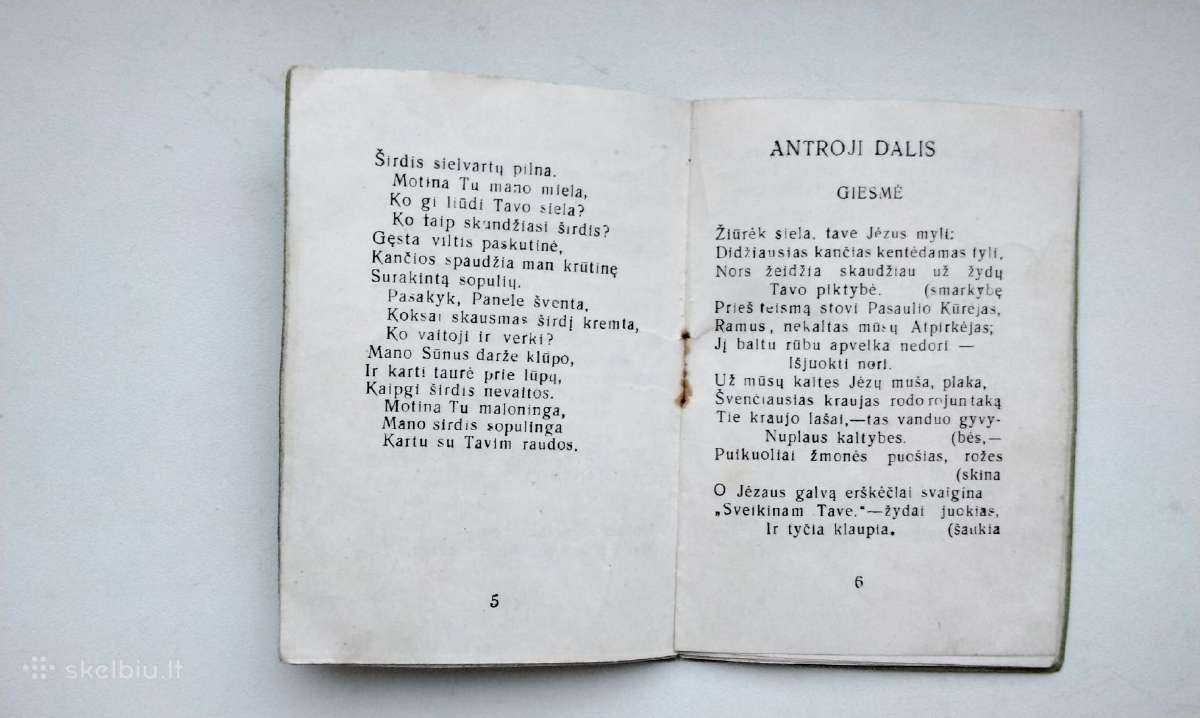 Širdis sielvartų pilna.
Motina Tu mano miela,
Ko gi liūdi Tavo siela?
Ko taip skundžiasi širdis?
Gęsta viltis paskutinė,
Kančios spaudžia man krūtinę
Surakintą sopulių.
Pasakyk, Panele šventa,
Koksai skausmas širdį kremta,
Ko vaitoji ir verki?
Mano Sūnus darže klūpo,
Ir karti taurė prie lūpų,
Kaipgi širdis nevaitos.
Motina Tu maloninga,
Mano sirdis sopulinga
Kartu su Tavim raudos.
5
ANTROJI DALIS
GIESMĖ
Žiūrėk siela, tave Jėzus myli:
Didžiausias kančias kentėdamas tyli,
Nors žeidžia skaudžiau už žydų
Tavo piktybė. (smarkybę
Prieš teismą stovi Pasaulio Kūrėjas,
Ramus, nekaltas mūsų Atpirkėjas;
Jį baltu rūbu apvelka nedori —
Išjuokti nori.
Už mūsų kaltes Jėzų muša, plaka,
Švenčiausias kraujas rodo rojun taką
Tie kraujo lašai,—tas vanduo gyvy-
Nuplaus kaltybes. (bės,—
Puikuoliai žmonės puošias, rožes
(skina
O Jėzaus galvą erškėčiai svaigina
„Sveikinam Tave.“—žydai juokias,
Ir tyčia klaupia. (šaukia
6
skelbiu.lt